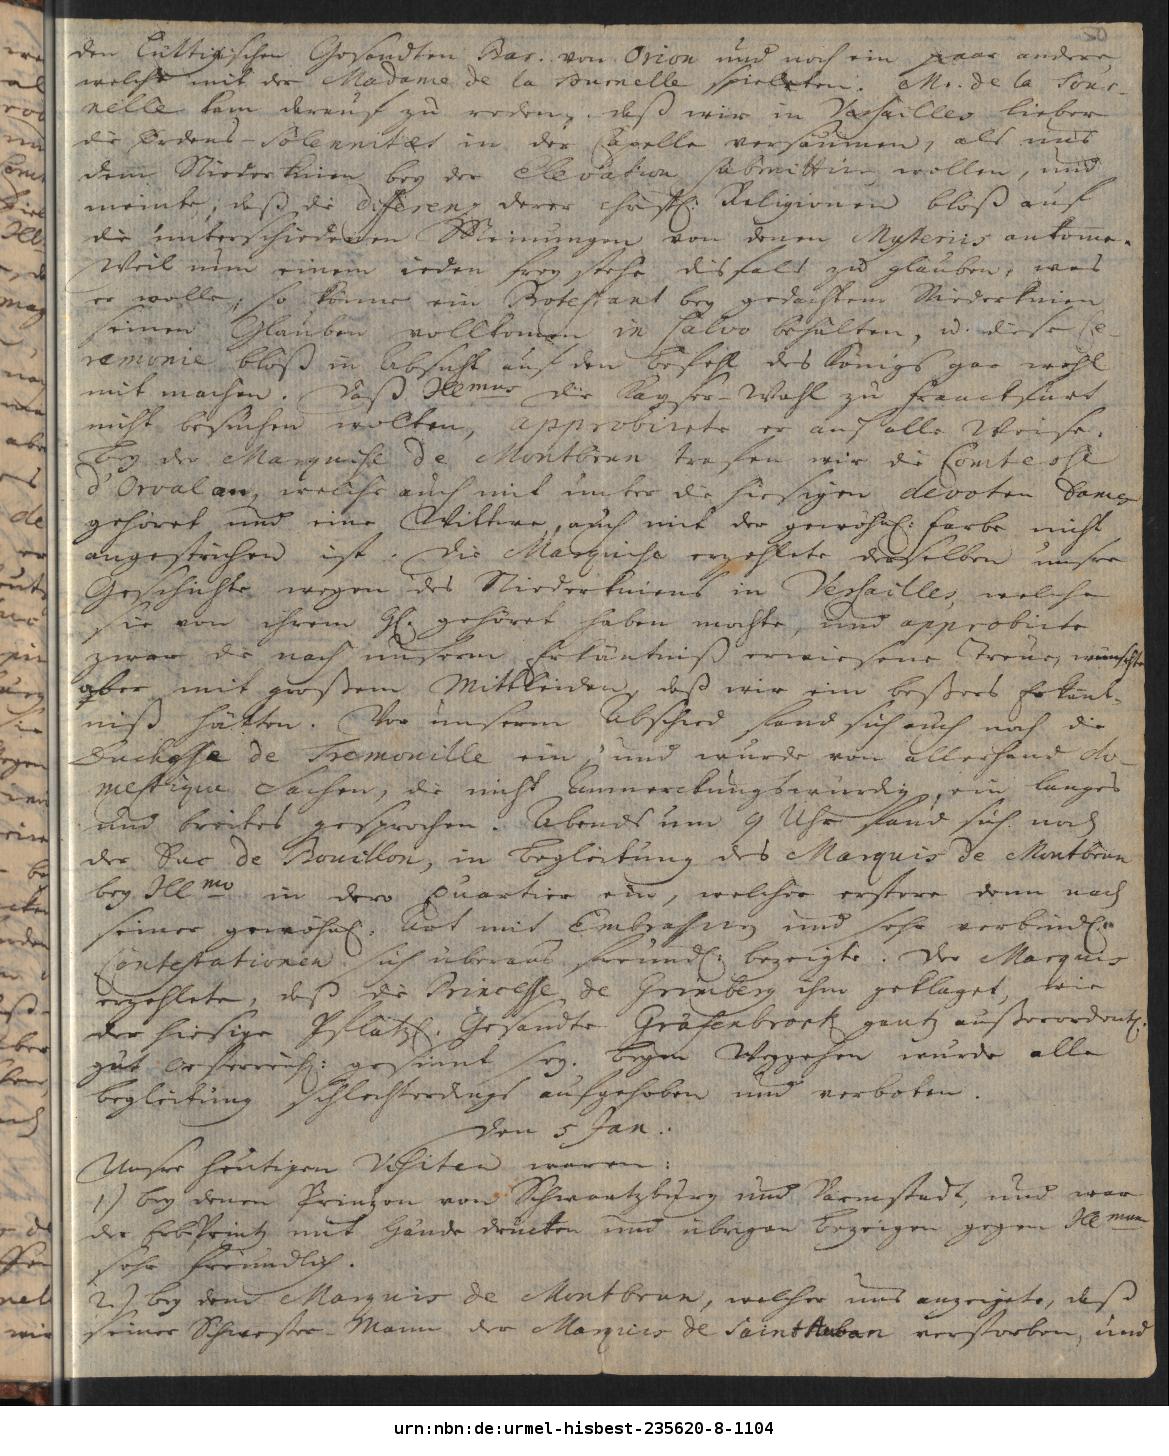 den Lüttigischen Gesandten Bar. von Orion und noch ein paar andere
welche mit der Madame de la Tournelle spielten. Mr. de la Tour-
nelle kam darauf zu reden, daß wir in Versailles lieber
die Ordens-Solennitæt in der Capelle versäumen, als uns
dem Niederknien bey der Elevation submittiren wollen, und
meinte, daß die differenz derer christl: Religionen bloß auf
die unterschiedenen Meinungen von denen Mysteriis ankome.
Weil nun einem ieden frey stehe disfals zu glauben, was
er wolle, so könne ein Protestant bey gedachtem Niederknien
seinen Glauben vollkomen in salvo behalten, u. diese Ce-
remonie bloß in Absicht auf den Befehl des Königs gar wohl
mit machen. Daß Illmus die Kayser-Wahl zu Franckfurt
nicht besuchen wolten, approbirete er auf alle Weise.
Bey der Marquise de Montbrun trafen wir die Comtesse
d'Orvalan, welche auch mit unter die hiesigen devoten Dames
gehöret und eine Wittwe, auch mit der gewöhnl: Farbe nicht
angestrichen ist. Die Marquise erzehlete derselben unsre
Geschichte wegen des Niederkniens in Versailles, welche
sie von ihrem H. gehöret haben mochte, und approbirte
zwar die nach unserm Erkäntniß erwiesene Treue, wünschte
aber mit großem Mittleiden, daß wir ein beßeres Erkänt-
niß hätten. Vor unserem Abschied fand sich auch noch die
Duchesse de Tremouille ein, und wurde von allerhand do-
mestique Sachen, die nicht Anmerckungswürdig, ein langes
und breites gesprochen. Abends um 9 Uhr fand sich noch
der Duc de Bouillon, in Begleitung des Marquis de Montbrun
bey Illmo in dero Quartier ein, welcher erstere denn nach
seiner gewöhnl. Art mit Embrassung und sehr verbindl.
Contestationen sich überaus freundl: bezeigte. Der Marquis
erzehlete, daß die Princesse de Grimberg ihm geklaget, wie
der hiesige Pfältzl. Gesandte Gräfenbrock gantz außerordentl.
gut Oesterreichl: gesinnt sey. Beym Weggehen wurde alle
Begleitung schlechterdings aufgehoben und verboten.
den 5 Jan.
Unsre heutigen Visiten waren:
1.) bey denen Prinzen von Schwartzburg und Darmstadt, und war
der ErbPrintz mit Hände drucken und übrigen Bezeigen gegen Illmum
sehr freundlich.
2.) bey dem Marquis de Montbrun, welcher uns anzeigete, daß
seiner Schwester-Mann der Marquis de Saint Auban verstorben, und
urn:nbn:de:urmel-hisbest-235620-8-1104